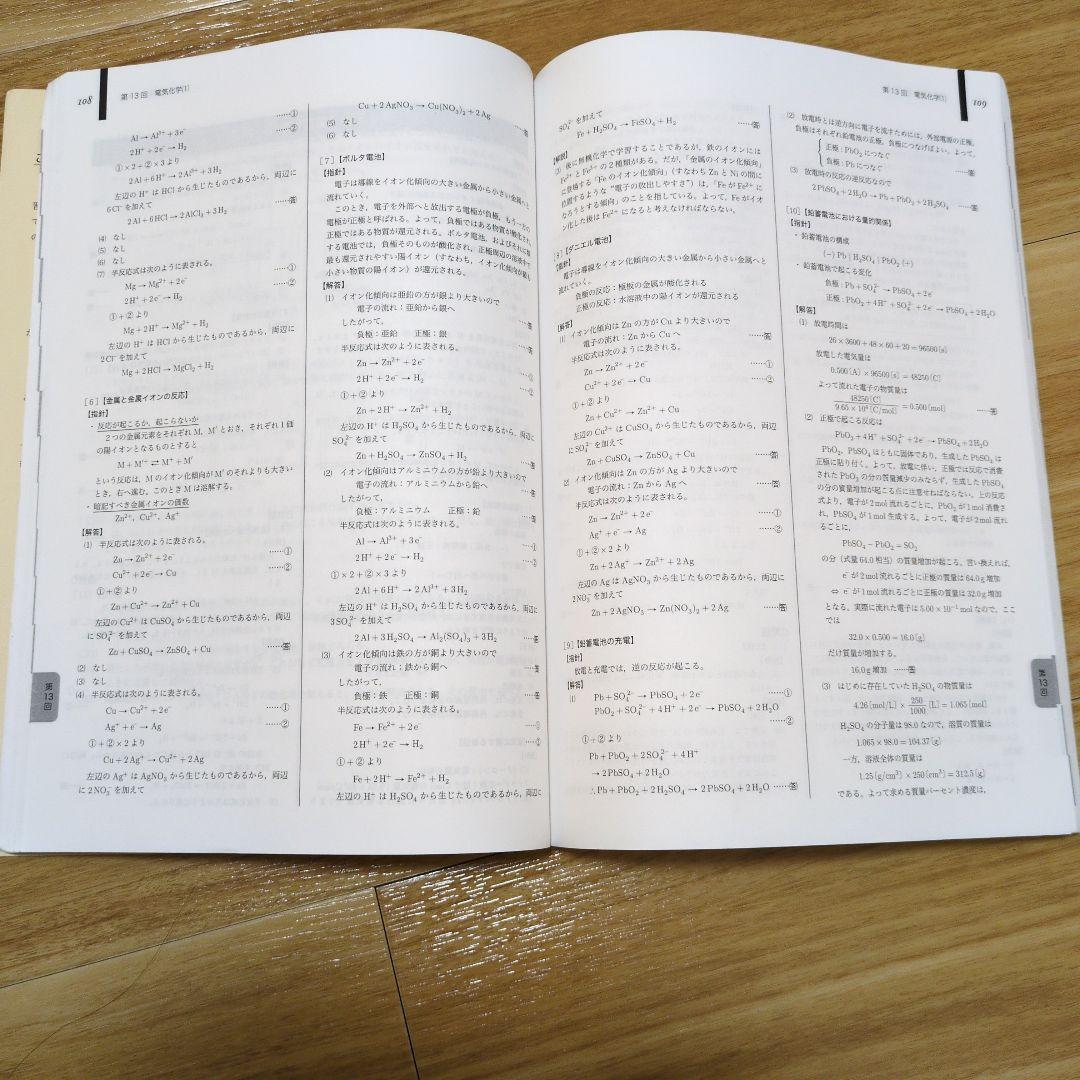 108
第13回　電気化学(1)
Al → Al³⁺ + 3e⁻ ……①
2H⁺ + 2e⁻ → H₂ ……②
①×2+②×3 より
2Al + 6H⁺ → 2Al³⁺ + 3H₂
左辺の H⁺ は HCl から生じたものであるから，両辺に
6Cl⁻ を加えて
2Al + 6HCl → 2AlCl₃ + 3H₂ ……答
(4) なし
(5) なし
(6) なし
(7) 半反応式は次のように表される。
Mg → Mg²⁺ + 2e⁻ ……①
2H⁺ + 2e⁻ → H₂ ……②
①+② より
Mg + 2H⁺ → Mg²⁺ + H₂
左辺の H⁺ は HCl から生じたものであるから，両辺に
2Cl⁻ を加えて
Mg + 2HCl → MgCl₂ + H₂
[6]【金属と金属イオンの反応】
【指針】
・反応が起こるか，起こらないか
2つの金属元素をそれぞれ M，M′ とおき，それぞれ1価
の陽イオンとなるものとすると
M + M′⁺ ⇄ M⁺ + M′
という反応は，M のイオン化傾向が M′ のそれよりも大きい
とき，右へ進む。このとき M は溶解する。
・暗記すべき金属イオンの価数
Zn²⁺，Cu²⁺，Ag⁺
【解答】
(1) 半反応式は次のように表される。
Zn → Zn²⁺ + 2e⁻ ……①
Cu²⁺ + 2e⁻ → Cu ……②
①+② より
Zn + Cu²⁺ → Zn²⁺ + Cu
左辺の Cu²⁺ は CuSO₄ から生じたものであるから，両辺
に SO₄²⁻ を加えて
Zn + CuSO₄ → ZnSO₄ + Cu ……答
(2) なし
(3) なし
(4) 半反応式は次のように表される。
Cu → Cu²⁺ + 2e⁻ ……①
Ag⁺ + e⁻ → Ag ……②
①+②×2 より
Cu + 2Ag⁺ → Cu²⁺ + 2Ag
左辺の Ag⁺ は AgNO₃ から生じたものであるから，両辺
に 2NO₃⁻ を加えて
第13回
Cu + 2AgNO₃ → Cu(NO₃)₂ + 2Ag ……答
(5) なし
(6) なし
[7]【ボルタ電池】
【指針】
電子は導線をイオン化傾向の大きい金属から小さい金属へと
流れていく。
このとき，電子を外部へと放出する電極が負極，もう一方の
電極が正極と呼ばれる。よって，負極ではある物質が酸化され，
正極ではある物質が還元される。ボルタ電池，およびそれに類
する電池では，負極そのものが酸化され，正極周辺の溶液中で
最も還元されやすい陽イオン（すなわち，イオン化傾向が最も
小さい物質の陽イオン）が還元される。
【解答】
(1) イオン化傾向は亜鉛の方が銀より大きいので
電子の流れ：亜鉛から銀へ ……答
したがって，
負極：亜鉛　正極：銀 ……答
半反応式は次のように表される。
Zn → Zn²⁺ + 2e⁻ ……①
2H⁺ + 2e⁻ → H₂ ……②
①+② より
Zn + 2H⁺ → Zn²⁺ + H₂
左辺の H⁺ は H₂SO₄ から生じたものであるから，両辺に
SO₄²⁻ を加えて
Zn + H₂SO₄ → ZnSO₄ + H₂ ……答
(2) イオン化傾向はアルミニウムの方が鉛より大きいので
電子の流れ：アルミニウムから鉛へ ……答
したがって，
負極：アルミニウム　正極：鉛 ……答
半反応式は次のように表される。
Al → Al³⁺ + 3e⁻ ……①
2H⁺ + 2e⁻ → H₂ ……②
①×2+②×3 より
2Al + 6H⁺ → 2Al³⁺ + 3H₂
左辺の H⁺ は H₂SO₄ から生じたものであるから，両辺に
3SO₄²⁻ を加えて
2Al + 3H₂SO₄ → Al₂(SO₄)₃ + 3H₂ ……答
(3) イオン化傾向は鉄の方が銅より大きいので
電子の流れ：鉄から銅へ ……答
したがって，
負極：鉄　正極：銅 ……答
半反応式は次のように表される。
Fe → Fe²⁺ + 2e⁻ ……①
2H⁺ + 2e⁻ → H₂ ……②
①+② より
Fe + 2H⁺ → Fe²⁺ + H₂
左辺の H⁺ は H₂SO₄ から生じたものであるから，両辺に
第13回　電気化学(1)
109
SO₄²⁻ を加えて
Fe + H₂SO₄ → FeSO₄ + H₂ ……答
【解説】
(3) 後に無機化学で学習することであるが，鉄のイオンには
Fe²⁺ と Fe³⁺ の2種類がある。だが，「金属のイオン化傾向」
に登場する「Fe のイオン化傾向」（すなわち Zn と Ni の間に
位置するような“電子の放出しやすさ”）は，「Fe が Fe²⁺ に
なろうとする傾向」のことを指している。よって，Fe がイオ
ン化した後は Fe²⁺ になると考えなければならない。
[8]【ダニエル電池】
【指針】
電子は導線をイオン化傾向の大きい金属から小さい金属へと
流れていく。
負極の反応：極板の金属が酸化される
正極の反応：水溶液中の陽イオンが還元される
【解答】
(1) イオン化傾向は Zn の方が Cu より大きいので
電子の流れ：Zn から Cu へ ……答
半反応式は次のように表される。
Zn → Zn²⁺ + 2e⁻ ……①
Cu²⁺ + 2e⁻ → Cu ……②
①+② より
Zn + Cu²⁺ → Zn²⁺ + Cu
左辺の Cu²⁺ は CuSO₄ から生じたものであるから，両辺
に SO₄²⁻ を加えて
Zn + CuSO₄ → ZnSO₄ + Cu ……答
(2) イオン化傾向は Zn の方が Ag より大きいので
電子の流れ：Zn から Ag へ ……答
半反応式は次のように表される。
Zn → Zn²⁺ + 2e⁻ ……①
Ag⁺ + e⁻ → Ag ……②
①+②×2 より
Zn + 2Ag⁺ → Zn²⁺ + 2Ag
左辺の Ag は AgNO₃ から生じたものであるから，両辺に
2NO₃⁻ を加えて
Zn + 2AgNO₃ → Zn(NO₃)₂ + 2Ag ……答
[9]【鉛蓄電池の充電】
【指針】
放電と充電では，逆の反応が起こる。
【解答】
(1)
Pb + SO₄²⁻ → PbSO₄ + 2e⁻ ……①
PbO₂ + SO₄²⁻ + 4H⁺ + 2e⁻ → PbSO₄ + 2H₂O
……②
①+② より
Pb + PbO₂ + 2SO₄²⁻ + 4H⁺
→ 2PbSO₄ + 2H₂O
∴Pb + PbO₂ + 2H₂SO₄ → 2PbSO₄ + 2H₂O ……答
(2) 放電時とは逆方向に電子を流すためには，外部電源の正極，
負極はそれぞれ鉛蓄電池の正極，負極につなげばよい。よって，
正極：PbO₂ につなぐ
負極：Pb につなぐ ……答
(3) 放電時の反応の逆反応なので
2PbSO₄ + 2H₂O → Pb + PbO₂ + 2H₂SO₄ ……答
[10]【鉛蓄電池における量的関係】
【指針】
・鉛蓄電池の構成
(−) Pb | H₂SO₄ | PbO₂ (+)
・鉛蓄電池で起こる変化
負極：Pb + SO₄²⁻ → PbSO₄ + 2e⁻
正極：PbO₂ + 4H⁺ + SO₄²⁻ + 2e⁻ → PbSO₄ + 2H₂O
【解答】
(1) 放電時間は
26 × 3600 + 48 × 60 + 20 = 96500〔s〕
放電した電気量は
0.500〔A〕× 96500〔s〕= 48250〔C〕
よって流れた電子の物質量は
48250〔C〕/ 9.65 × 10⁴〔C/mol〕= 0.500〔mol〕 ……答
(2) 正極で起こる反応は
PbO₂ + 4H⁺ + SO₄²⁻ + 2e⁻ → PbSO₄ + 2H₂O
PbO₂，PbSO₄ はともに固体であり，生成した PbSO₄ は
正極に貼り付く。よって，放電に伴い，正極では反応で消費
された PbO₂ の分の質量減少のみならず，生成した PbSO₄
の分の質量増加が起こる点に注意せねばならない。上の反応
式より，電子が 2mol 流れるごとに，PbO₂ が 1mol 消費さ
れ，PbSO₄ が 1mol 生成する。よって，電子が 2mol 流れ
るごとに，
PbSO₄ − PbO₂ = SO₂
の分（式量 64.0 相当）の質量増加が起こる。言い換えれば，
e⁻ が 2mol 流れるごとに正極の質量は 64.0g 増加
⇔ e⁻ が 1mol 流れるごとに正極の質量は 32.0g 増加
となる。実際に流れた電子は 5.00 × 10⁻¹ mol なので，ここ
では
32.0 × 0.500 = 16.0〔g〕
だけ質量が増加する。
16.0g 増加 ……答
(3) はじめに存在していた H₂SO₄ の物質量は
4.26〔mol/L〕× 250/1000〔L〕= 1.065〔mol〕
H₂SO₄ の分子量は 98.0 なので，溶質の質量は
1.065 × 98.0 = 104.37〔g〕
一方，溶液全体の質量は
1.25〔g/cm³〕× 250〔cm³〕= 312.5〔g〕
である。よって求める質量パーセント濃度は，
第13回